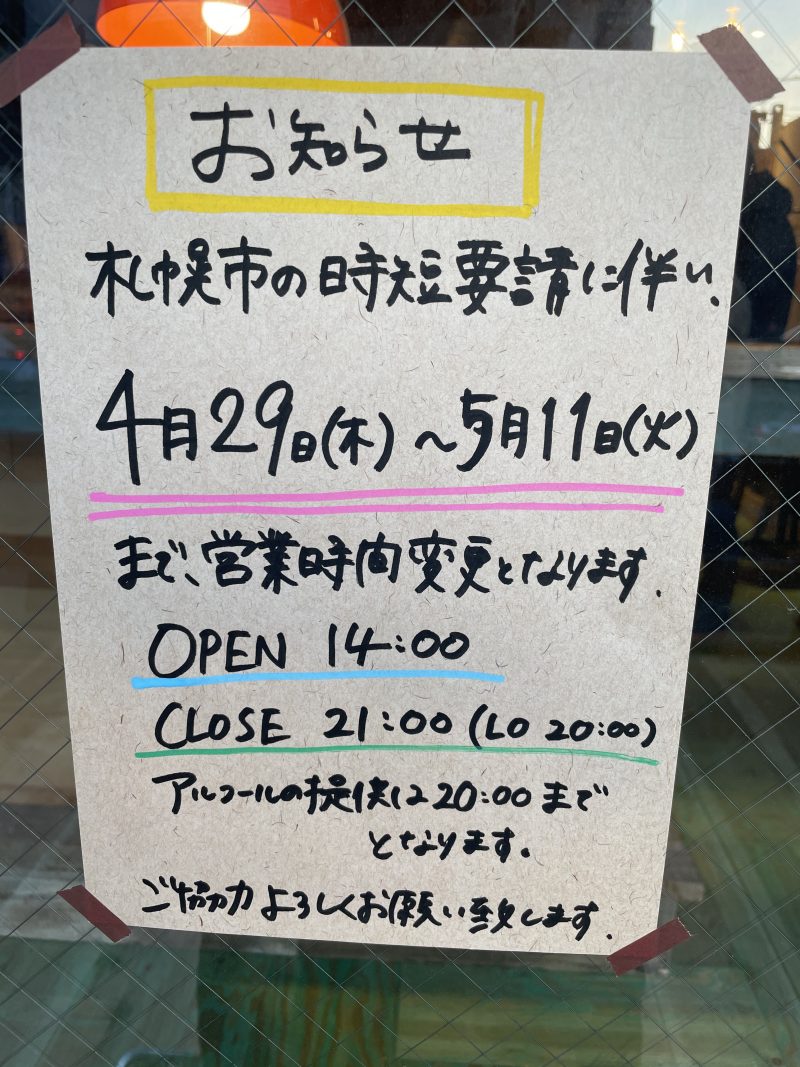 お知らせ
札幌市の時短要請に伴い、
4月29日(木)～5月11日(火)
まで、営業時間変更となります.
OPEN 14:00
CLOSE 21:00 (LO 20:00)
アルコールの提供は20:00まで
となります.
ご協力よろしくお願い致します.